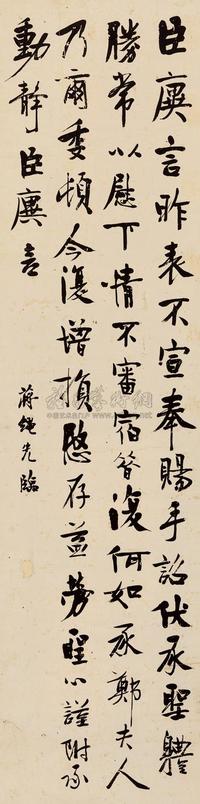 臣廙言昨表不宣奉賜手詔伏承聖體
勝常以慰下情不審宿昔復何如承鄭夫人
乃爾委頓今復增損愍存益勞聖心謹附承
動靜臣廙言
蔣繩先臨